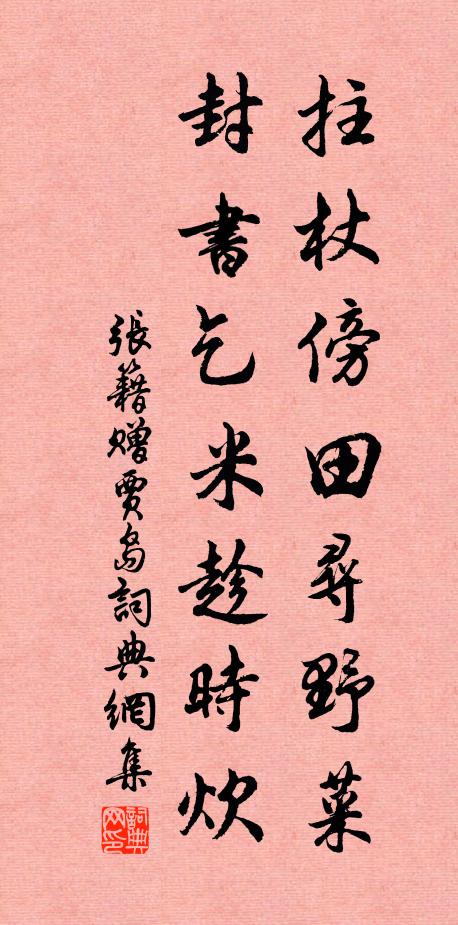 拄杖傍田尋野菜
封書乞米趁時炊
張籍贈賈島詞典網集
詞典网印